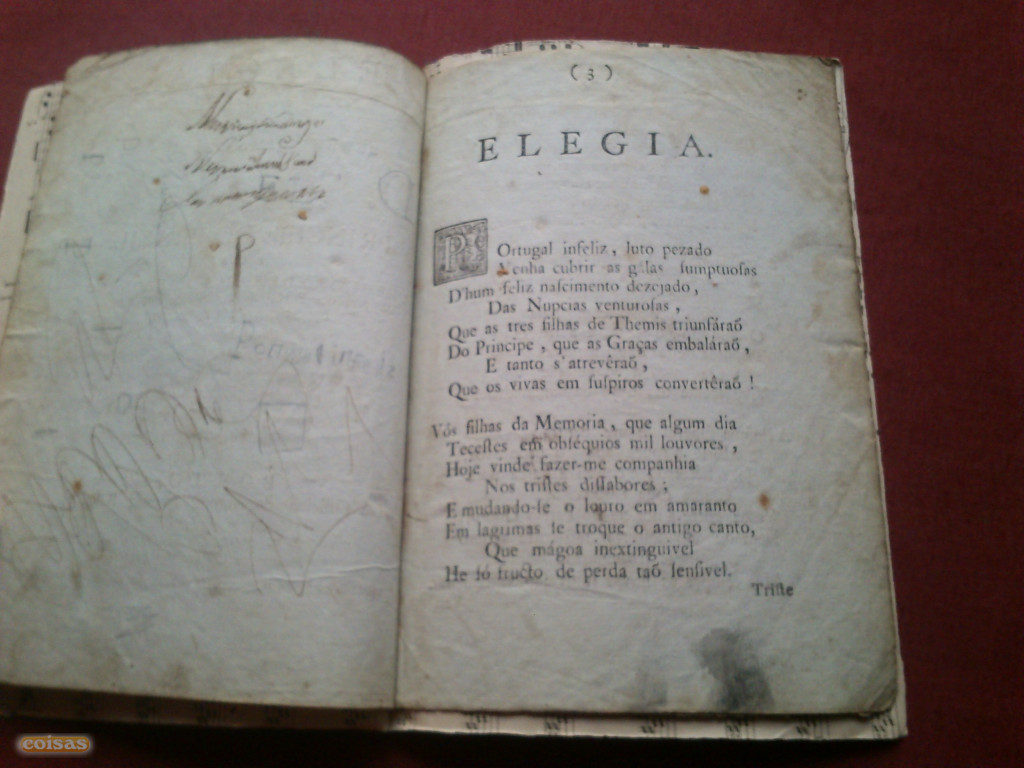 P
( 3 )
ELEGIA.
POrtugal infeliz, luto pezado
Venha cubrir as gálas ſumptuoſas
D'hum feliz naſcimento dezejado,
Das Nupcias venturoſas,
Que as tres filhas de Themis triunfáraõ
Do Principe, que as Graças embaláraõ,
E tanto s'atrevêraõ,
Que os vivas em ſuſpiros convertêraõ!
Vós filhas da Memoria, que algum dia
Teceſtes em obſéquios mil louvores,
Hoje vinde fazer-me companhia
Nos triſtes diſſabores;
E mudando-ſe o louro em amaranto
Em lagrimas ſe troque o antigo canto,
Que mágoa inextinguivel
He ſó fructo de perda taõ ſenſivel.
Triſte
coisas